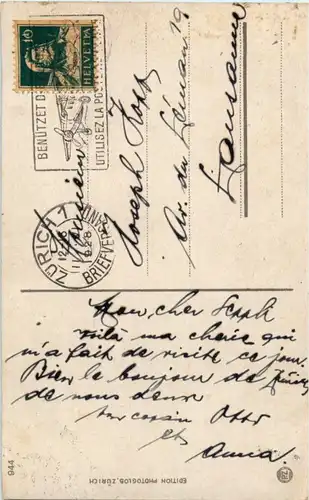 10
HELVETIA
BENÜTZET D
UTILISEZ LA PO
ZÜRICH 1
BRIEFVERS
Monsieur
Joseph Kopp
Av. du Léman 19
Lausanne
Mon cher Seppli
voilà ma cherie qui
m'a fait de visite ce jour.
Bien le bonjour de Zürich
de nous deux
ton cousin Otto
et
Anna.
944
EDITION PHOTOGLOB ZÜRICH